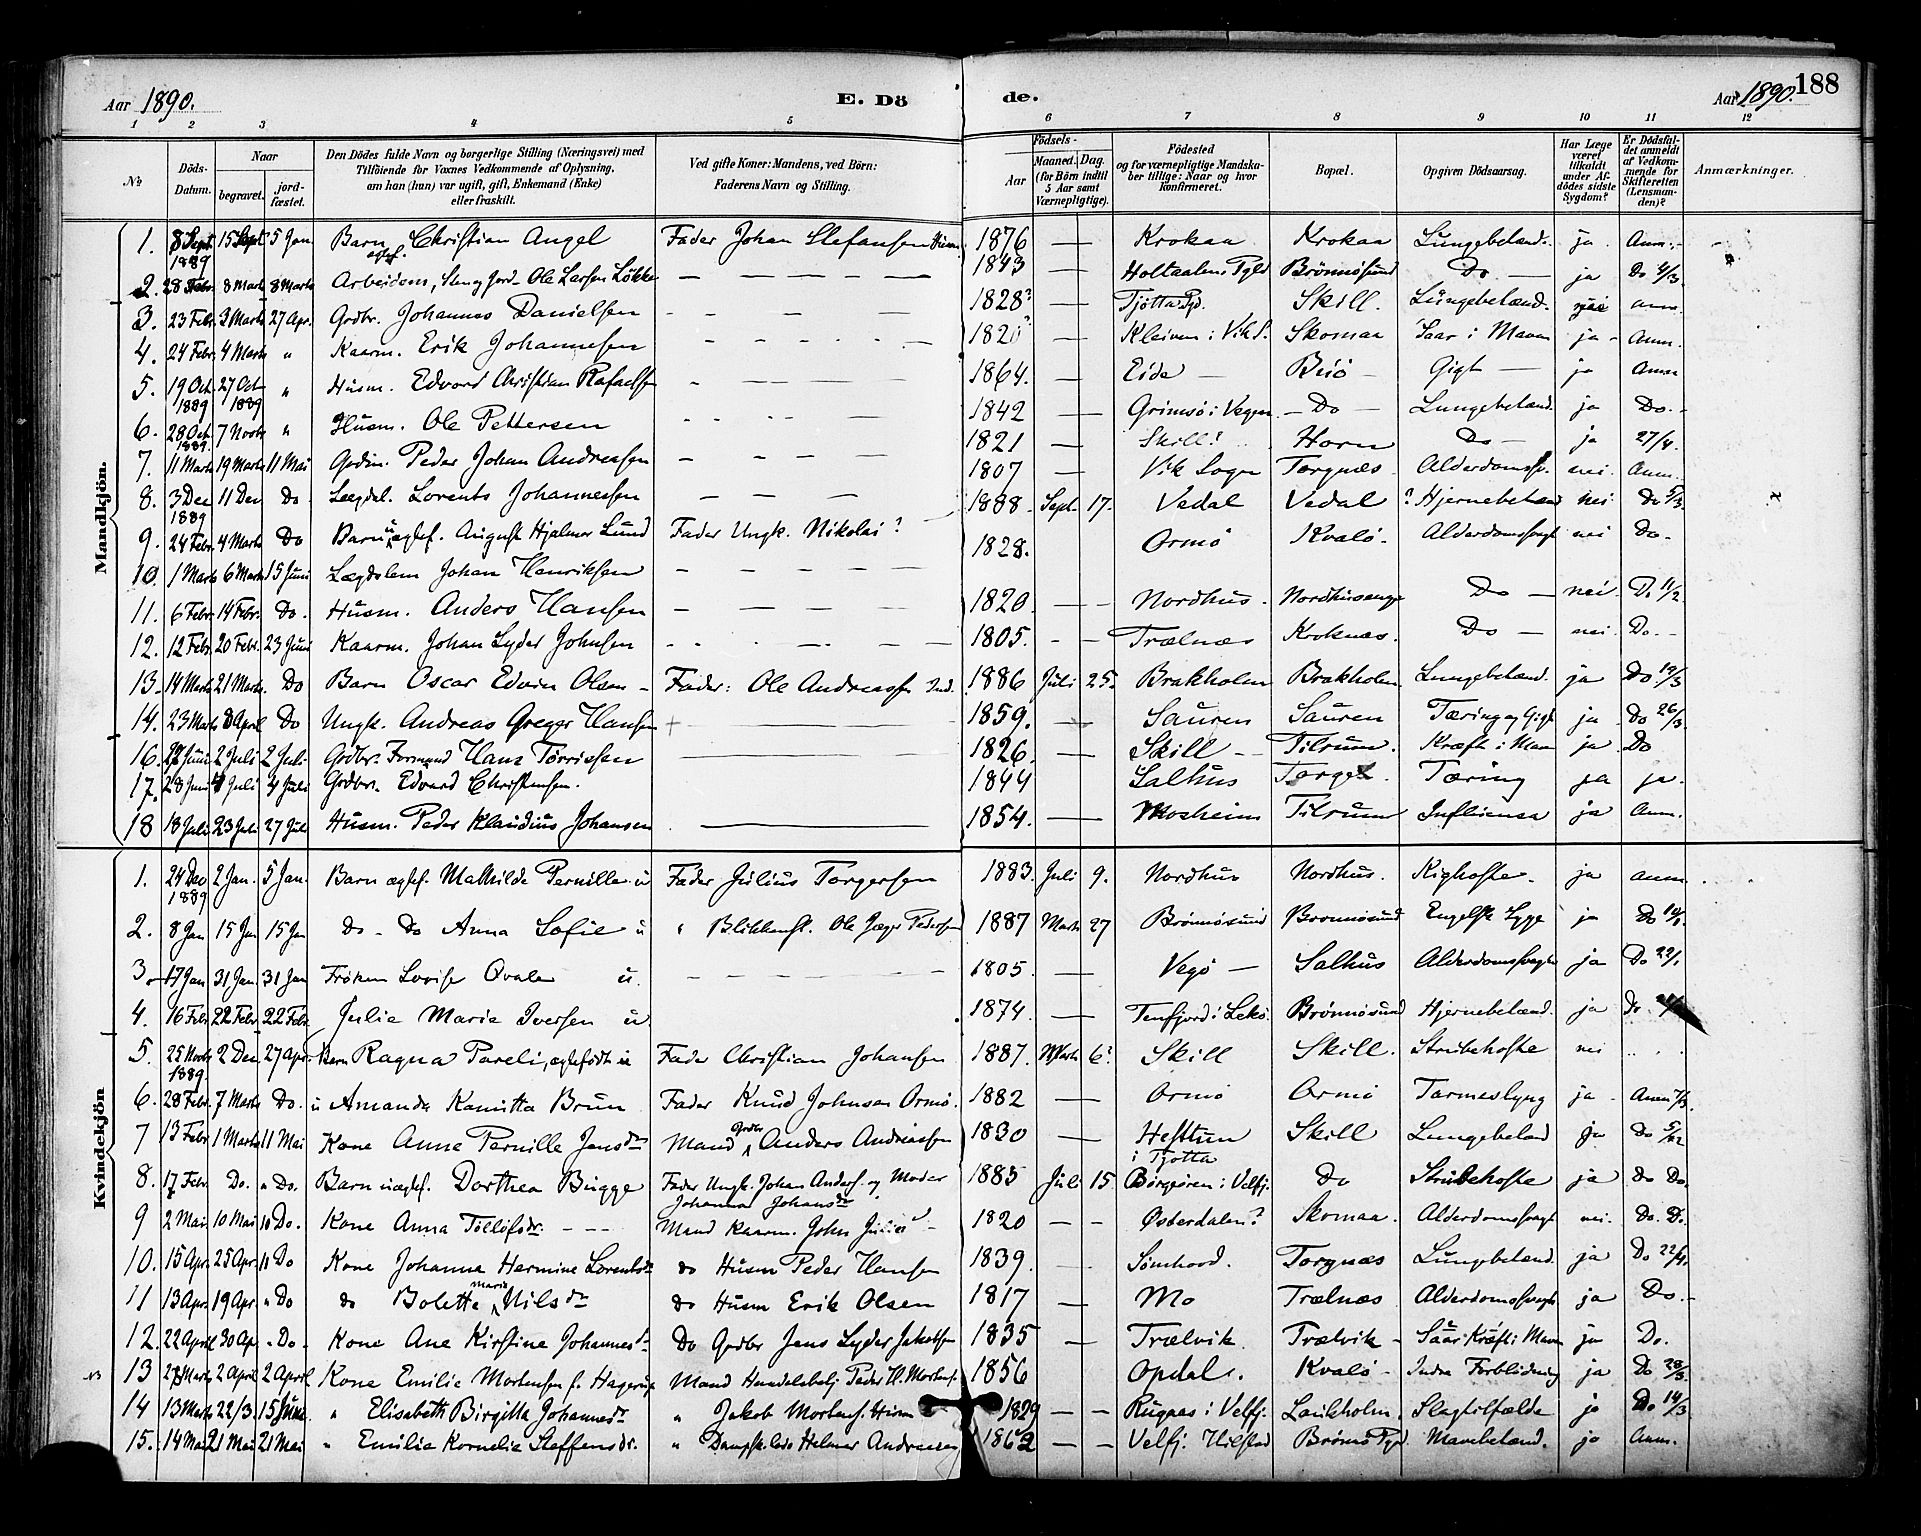 Aar 1890. E. Dö de. Aar 1890. 188
1 2 3 4 5 6 7 8 9 10 11 12
No Döds-Datum. Naar begravet. jordfæstet. Den Dödes fulde Navn og borgerlige Stilling (Næringsvei) med Tilföiende for Voxnes Vedkommende af Oplysning, om han (hun) var ugift, gift, Enkemand (Enke) eller fraskilt. Ved gifte Koner: Mandens, ved Börn: Faderens Navn og Stilling. Födsels- Aar Maaned. Dag. (for Börn indtil 5 Aar samt Værnepligtige). Födested og for værnepligtige Mandskaber tillige: Naar og hvor konfirmeret. Bopæl. Opgiven Dödsaarsag. Har Læge været tilkaldt under Afdödes sidste Sygdom? Er Dödsfaldet anmeldt af Vedkommende for Skifteretten (Lensmanden)? Anmærkninger.
Mandkjön.
1. 8 Sept. 1889 15 Sept 5 Jan Barn ægtef. Christian Angel Fader Johan Stefansen Husm 1876 — Krokaa Krokaa Lungebetænd. ja Anm.
2. 28 Febr. 8 Marts 8 Marts Arbeidsm, Ole Larsen Løkke — 1843 — Holtaalens Pgld Brönnösund Do — ja Do 4/3.
3. 23 Febr. 3 Marts 27 Apr. Grdbr. Johannes Danielsen — 1828? — Tjötta Pgd. Skill. Lungebetænd. nei anm.
4. 24 Febr. 4 Marts " Kaarm. Erik Johannesen — 1820? — Kleiven i Vik S. Skomaa Saar i Maven ja Anm.
5. 19 Oct. 1889 27 Oct 1889 " Husm. Edvard Christian Rafaelsen — 1864. — Eide — Beiö — Gigt — ja Anm
6. 28 Oct. 1889. 7 Novbr " Husm. Ole Pettersen — 1842 — Grimsö i Vegen — Do — Lungebetænd. ja Do.
7. 11 Marts 19 Marts 11 Mai Grdm. Peder Johan Andreasen — 1821 — Skill? Horn Do — ja 27/4.
8. 3 Dec 1889 11 Dec Do Lægdsl. Lorents Johannesen — 1807 — Vik Sogn Torgnæs. Alderdomssv. nei. Anm.
9. 24 Febr. 4 Marts Do Barn uægtef. August Hjalmar Lund Fader Ungk. Nikolai? 1888. Sept. 17. Vedal Vedal ? Hjernebetænd nei Do 5/3.
10. 1 Marts 6 Marts 15 Juni Lægdslem Johan Henriksen — 1828. Ormö Kvalö. Alderdomssvagt nei Do.
11. 6 Febr. 14 Febr. Do. Husm. Anders Hansen — 1820. — Nordhus. Nordhuseng Do — nei. Do 11/2
12. 12 Febr. 20 Febr. 23 Juni Kaarm. Johan Lyder Johnsen — 1805. — Trælnæs Kroknæs. Do — nei. Do.
13. 14 Marts 21 Marts. Do Barn Oscar Edvin Olsen — Fader: Ole Andreassen Ind. 1886 Juli 25. Brakholm Brakholm. Lungebetænd. ja Do 19/3
14. 23 Marts 8 April Do Ungk. Andreas Greger Hansen + — 1859. — Sauren Sauren Tæring og Gigt ja Do 26/3.
16. 27 Juni 2 Juli 2 Juli Grdbr. Formand Hans Torrissen — 1826. — Skill — Tilrum. Kræft i Mav ja. Do
17. 28 Juni 4 Juli 4 Juli Grdbr. Edvard Christensen. 1844 Salhus Torget. Tæring ja ja.
18 18 Juli 23 Juli 27 Juli Husm. Peder Klaudius Johansen — 1854. — Mosheim Tilrum Influensa ja Anm.
Kvindekjön
1. 24 Dec 1889 2 Jan. 5 Jan. Barn ægtef. Mathilde Pernille u Fader Julius Torgersen 1883. Juli 9. Nordhus Nordhus. Kighoste. ja anm.
2. 8 Jan 15 Jan 15 Jan Do — Do Anna Sofie u " Blikkensl. Ole Jæger Pedersen 1887 Marts 27 Brönnösund Brönnösund Engelsk Syge ja Do 10/1.
3. 17 Jan 31 Jan. 31 Jan Fröken Lovise Qvale u. — 1805. — Vegö — Salhus Alderdomssvagh ja Do 22/1
4. 16 Febr. 22 Febr. 22 Febr. Julie Marie Iversen u. 1874. — Tenfjord i Lekö. Brönnösund Hjernebetænd. ja Do
5. 25 Novbr 1889. 2 Dec 27 Apr. Barn Ragna Pareli, ægtefödt u Fader Christian Johansen 1887. Marts 6? Skill Skill. Strubehoste nei
6. 28 Febr. 7 Marts Do. u Amanda Kamitta Brun Fader Knud Johnsen Ormö. 1882 — Ormö Ormö Tarmeslyng ja Anm 7/3.
7 13 Febr 1 Marts 11 Mai Kone Anne Pernille Jensdtr Mand Grdbr Anders Andreassen 1830 — Hesttun i Tjötta Skill Lungebetænd ja Do
8. 17 Febr. Do. " Do. Barn uægtef. Dorthea Bugge Fader Ungk. Johan Anders. og Moder Johanna Johansdtr 1885 Juli 15. Börgeören i Velfj. Do Strubehoste ja Do Do.
9 2 Mai. 10 Mai Do. Kone Anna Tollöfsdr. — Mand Kaarm. John Julius — 1820 — Österdalen? Skomaa. Alderdomssvagt nei. Do. Do.
10. 15 Apr. 25 Apr. " Do Kone Johanna Hermine Lorentsdtr do Husm Peder Hansen 1839. — Sömhoved. Torgnæs Lungebetænd. ja Do 22/4.
11 13 Apr. 19 Apr. " Do do Bolette Marie Nilsdtr do Husm Erik Olsen 1817 — Mo Trælnæs Alderdomssvagh ja Do.
12. 22 April 30 Ap. " Do. Kone Ane Kirstine Johannesdtr. Do Grdbr Jens Lyder Jakobsen 1835 — Trælvik. Trælvik — Saar Kræft i Maven ja Do.
NB 13 27 Marts 2 April 2 April Kone Emilie Mortensen f. Hagerup Mand Handelsbetj Peder H. Mortens. 1856 Opdal. Kvalö — Indre Forblödning ja Do 28/3.
14 13 Marts 22/3. 15 Juni. " Elisabeth Birgitta Johannesdtr " Jakob Mortens. Husm 1829 — Rugaas i Velfj. Laukholm. Slagtilfælde ja Do 14/3
15. 14 Mai 21 Mai 21 Mai " Emilie Kornelie Steffensdr. " Dampsk. Helmer Andreasen 1862 — Velfj. Hilstad Brönnö Pgd. Mavebetænd. ja Anm.